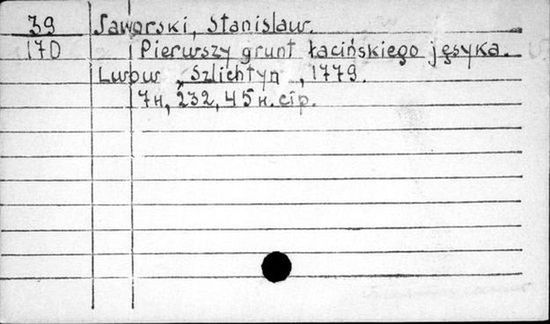 39 Jaworski, Stanislaw.
170 Pierwszy grunt łacińskiego języka.
Lwów, Szlichtyn, 1779.
7н, 232, 45 н. стр.